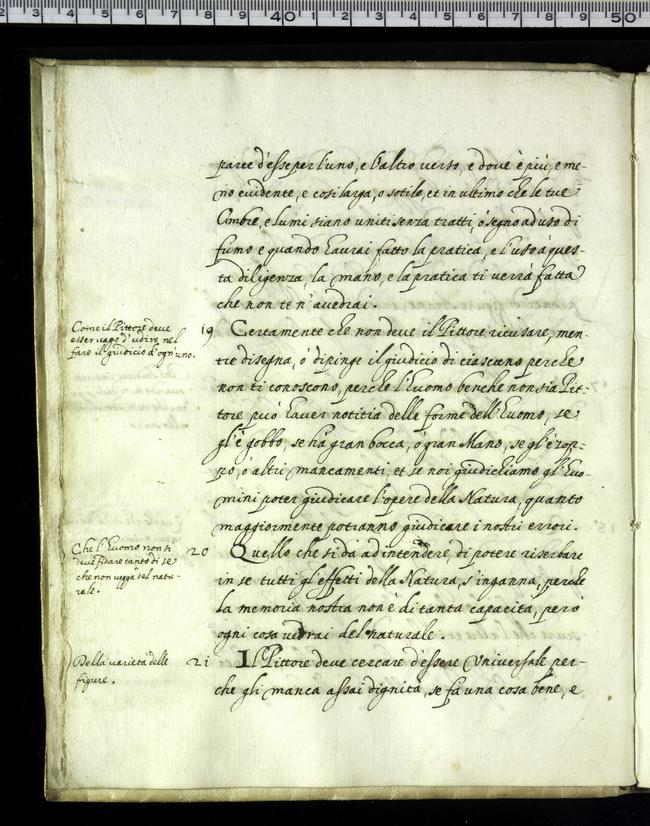 parte d'esse per l'uno, e l'altro verso, e dove è più, e me-
no evidente, e così larga, o sotile, et in ultimo che le tue
Ombre, e lumi siano uniti senza tratti, ò segno ad uso di
fumo e quando haurai fatto la pratica, e l'uso à ques-
ta diligenza, la mano, e la pratica ti verrà fatta
che non te n'avedrai.
Come il Pittore deve
esser vago d'udire nel
fare il giudicio d'ogn'uno.
19 Certamente che non deve il Pittore ricusare, men-
tre disegna, ò dipinge il giudicio di ciascuno perche
non ti conoscono, perche l'huomo benche non sia Pit-
tore può haver notitia delle forme dell'huomo, se
gl'è gobbo, se hà gran bocca, ò gran Mano, se gl'è zop-
po, ò altri mancamenti, et se noi giudichiamo gl'huo-
mini poter giudicare l'opere della Natura, quanto
maggiormente potranno giudicare i nostri errori.
Che l'huomo non si
deve fidare tanto di se
che non vegga sul natu-
rale.
20 Quello che si dà ad intendere di potere riserbare
in se tutti gl'effetti della Natura, s'inganna, perche
la memoria nostra non è di tanta capacità, però
ogni cosa vedrai del naturale.
Della varietà delle
figure.
21 Il Pittore deve cercare d'essere Universale per-
che gli manca assai dignità, se fa una cosa bene, e